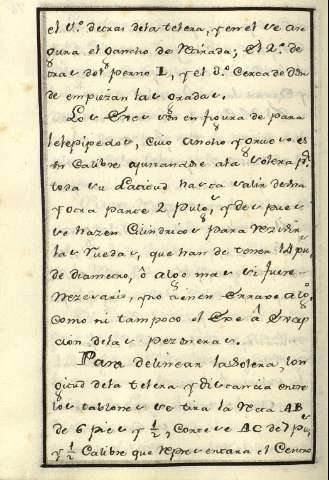 el 1.º detras dela telera, y en el se ase
gura el gancho de Retirada; El 2.º de
tras del perno L, y el 3.º Cerca de donde
empiezan las gradas.
Los Exes son en figura de para
lelepipedos, cuio ancho y grueso es
un Calibre ajustandose ala solera por
toda su Latitud hasta salir de una
y otra parte 2 Pulg.s y des pues
se hazen Cilindricos para Recivir
las Ruedas, que han de tener 14 pu.s
de diametro, ô algo mas si fuere
Nezesario,
Como ni tampoco el Exe â Excep
cion delas pezoneras.
Para delinear la Solera, lon
gitud dela telera y distancia entre
los tablones se tira la Recta AB
de 6 pies y ½, Cortese AC de 7 pu.s
y ½ Calibre que Representara el Centro